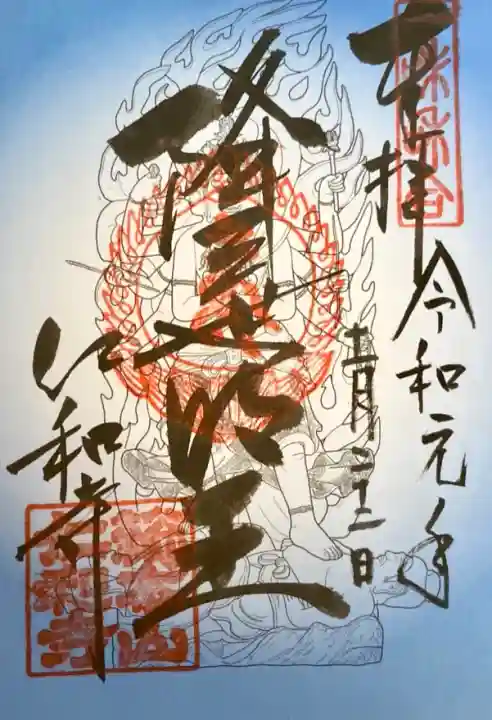 奉拝
令和元年
十一月二十二日
降三世明王
仁和寺